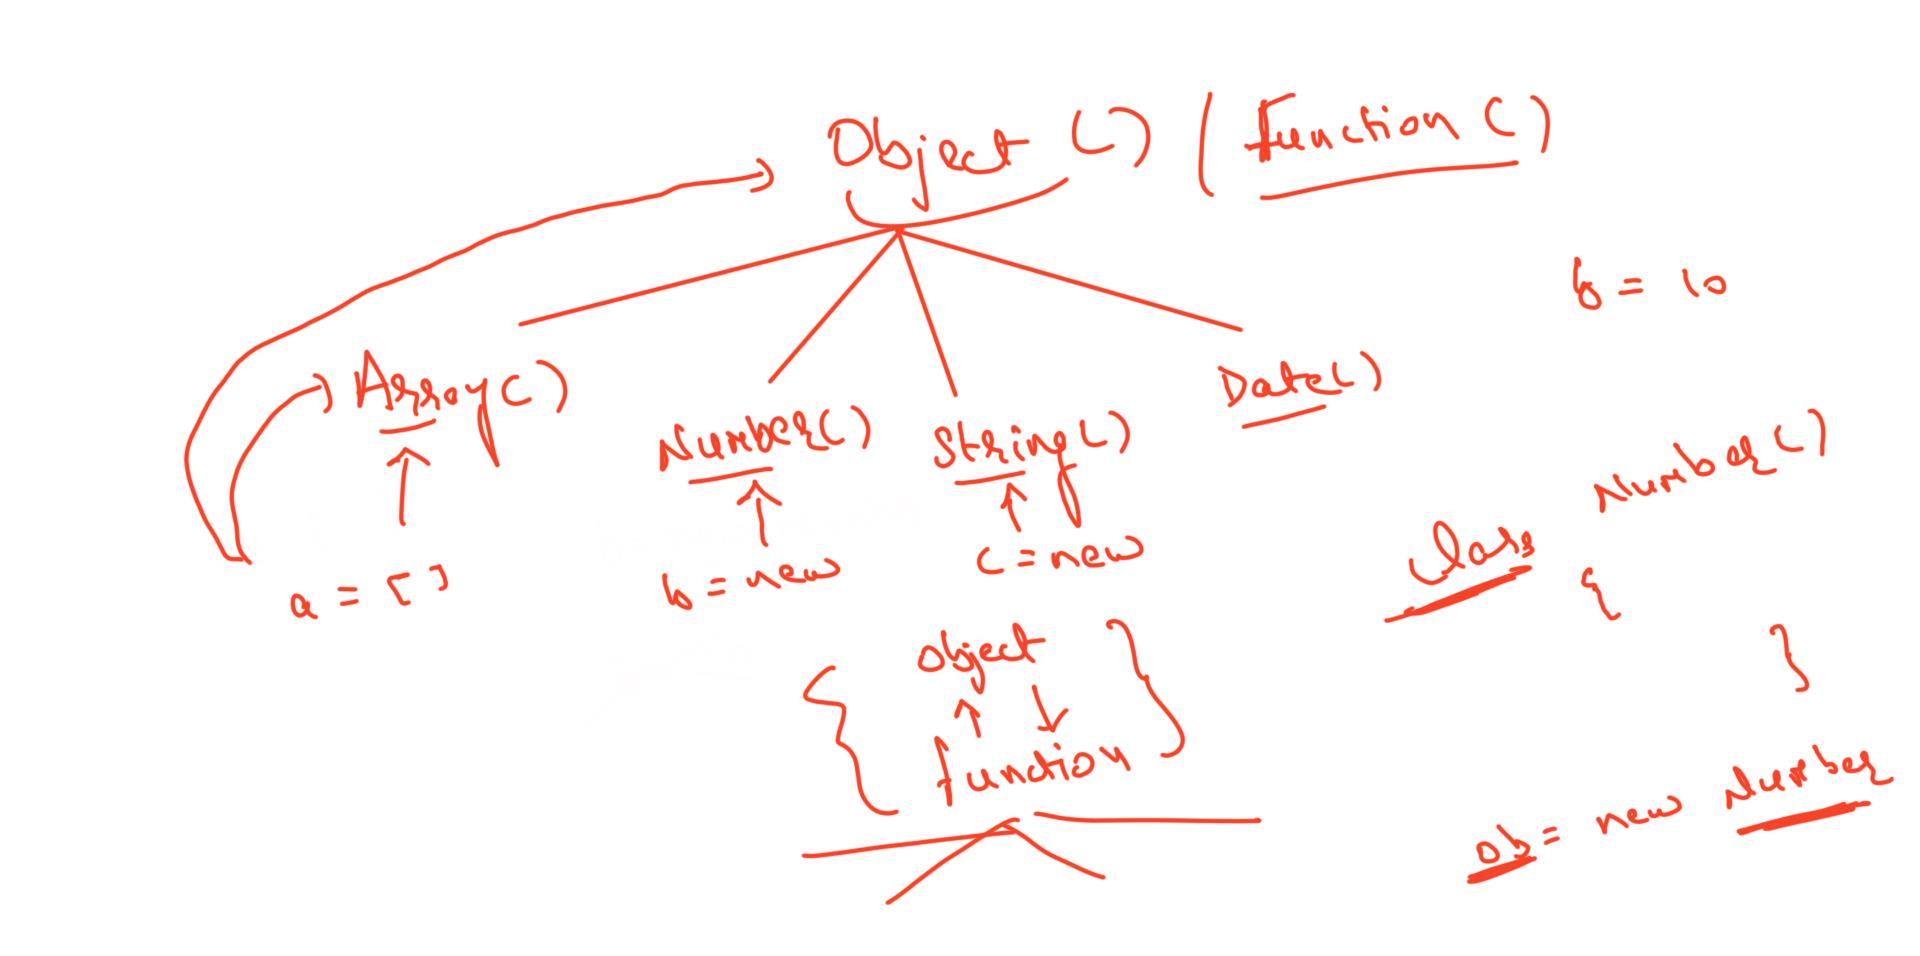 Object () ( Function ( )
b = 10
Array ( )
Number ( )
String ( )
Date ( )
a = [ ]
b = new
c = new
object
function
Class Number ( )
{
}
ob = new Number